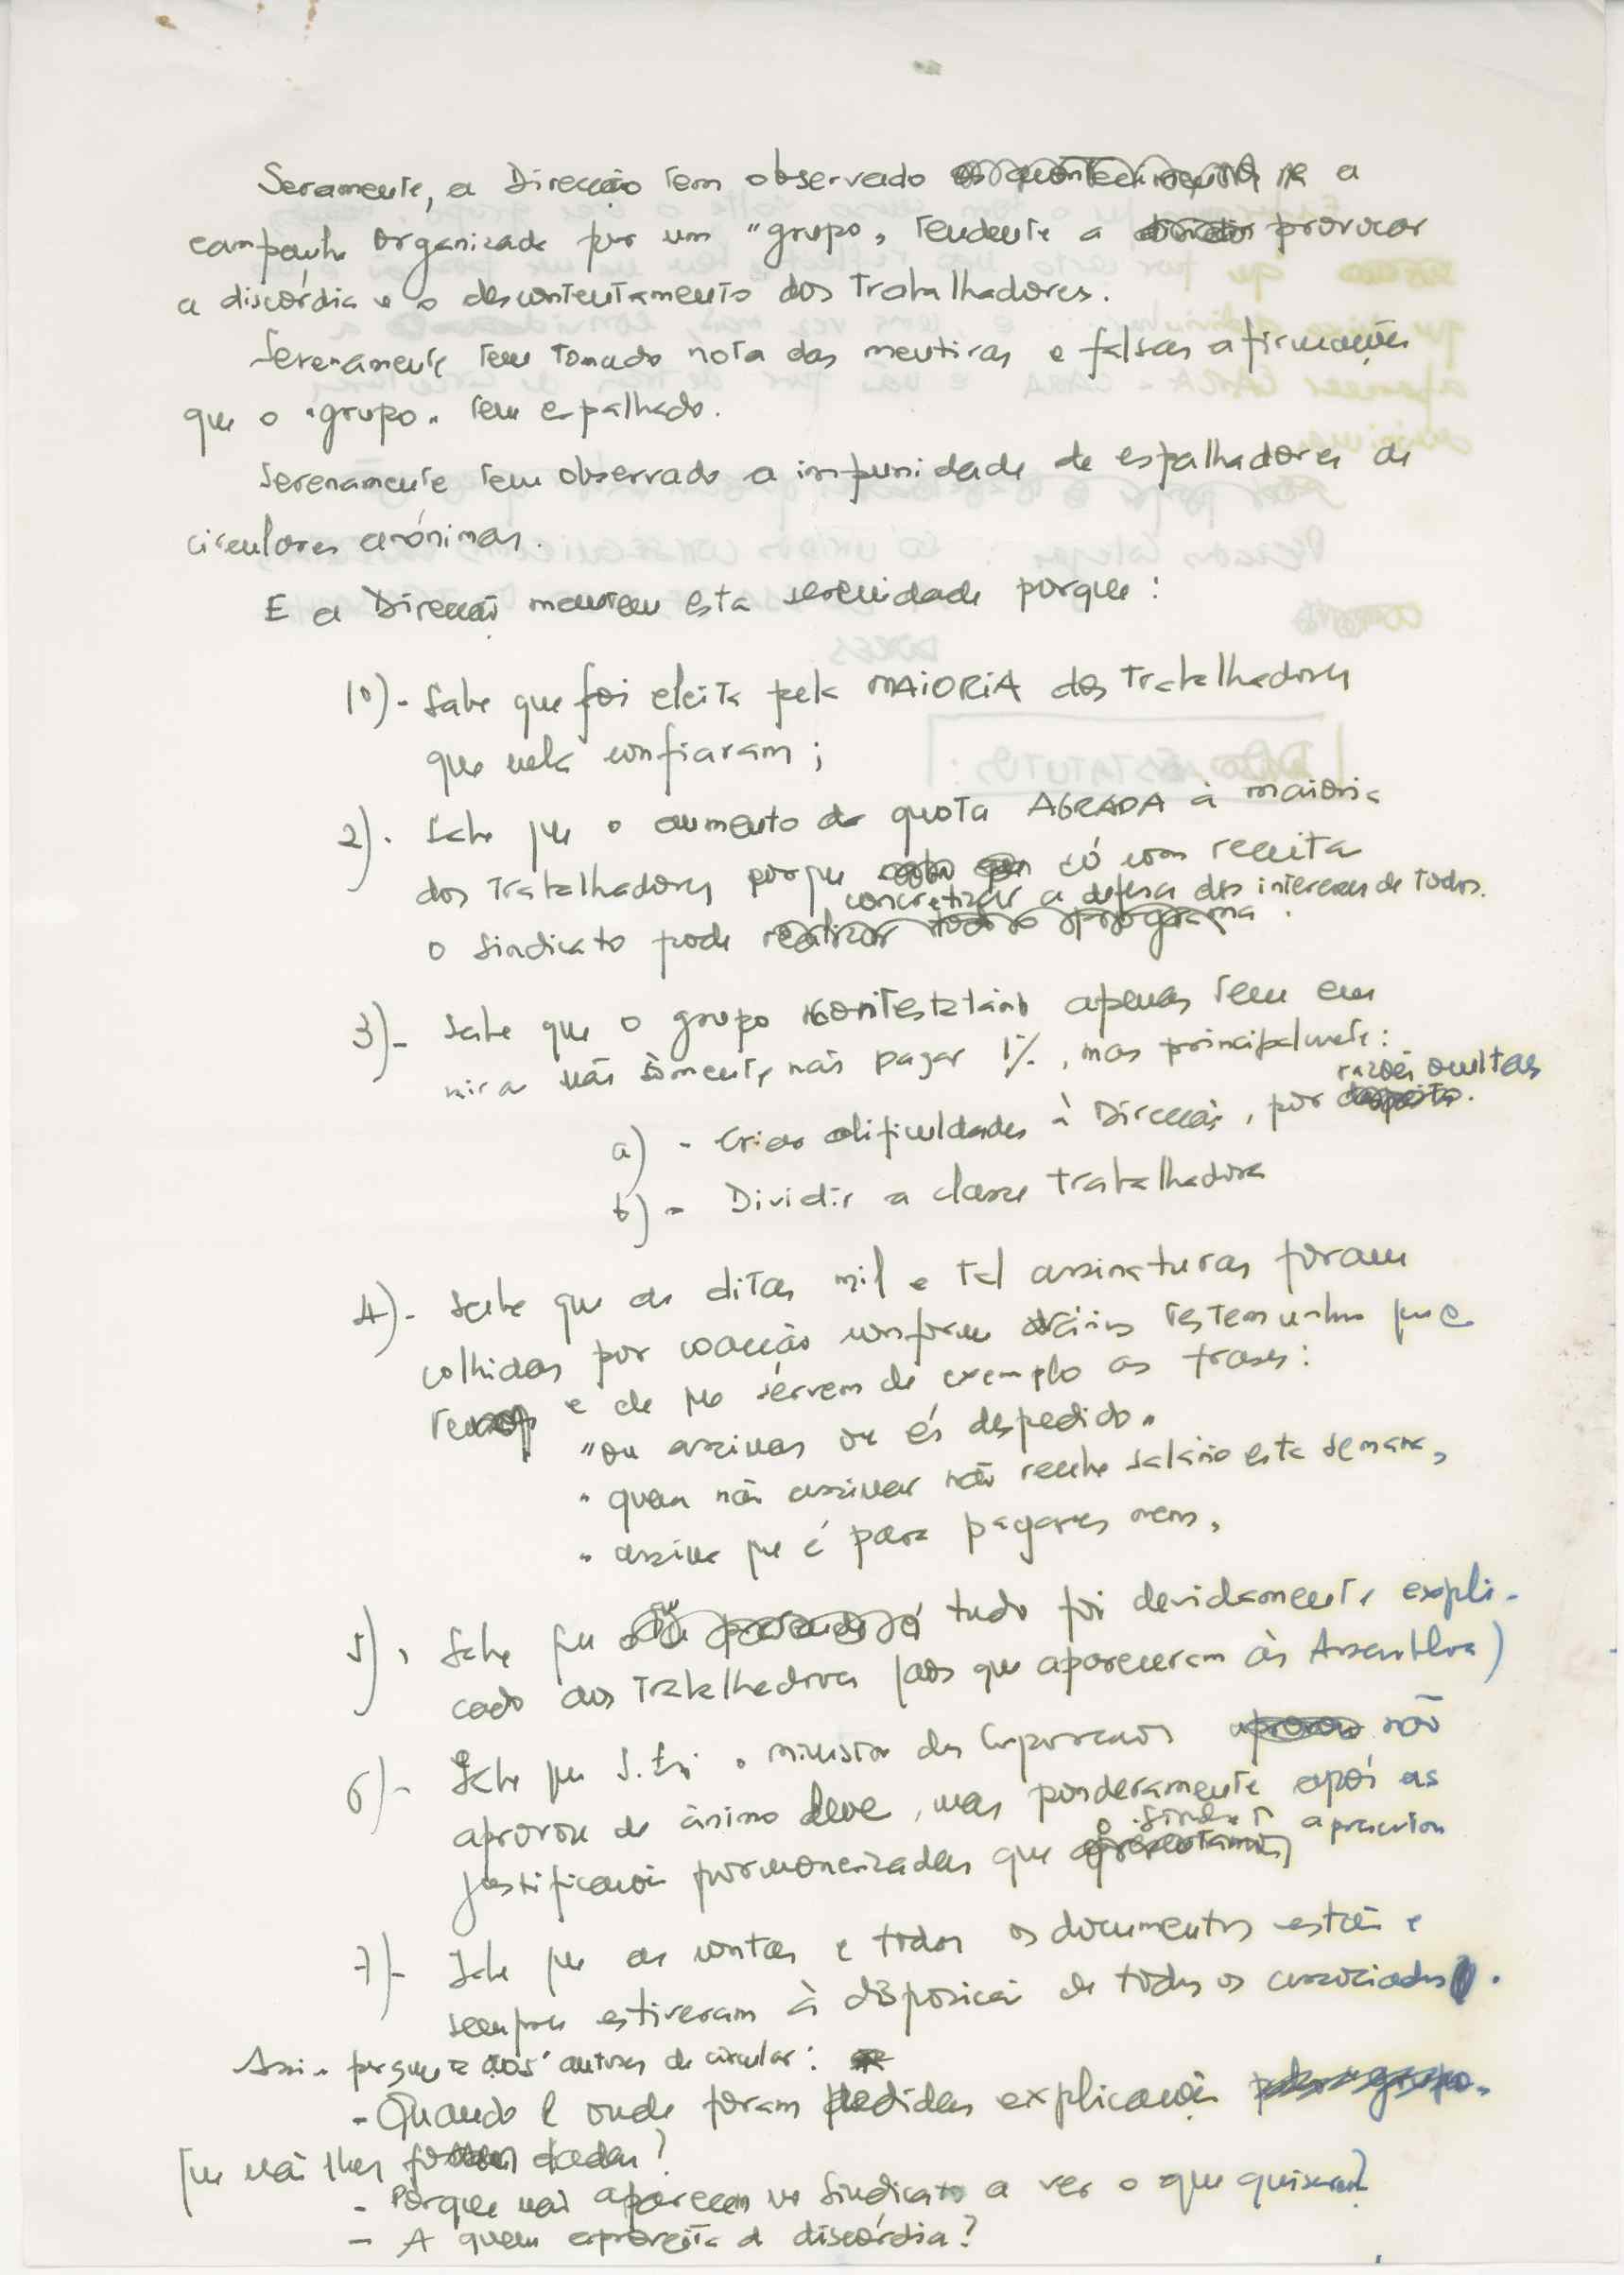 Seramente, a Direcção tem observado os acontecimentos a
campanha organizada por um "grupo" tendente a provocar
a discórdia e o descontentamento dos trabalhadores.
Serenamente tem tomado nota das mentiras e falsas afirmações
que o "grupo" tem espalhado.
Serenamente tem observado a impunidade de espalhadores de
circulares anónimas.
E a Direcção mantem esta serenidade porque:
1º)- Sabe que foi eleita pela MAIORIA dos trabalhadores
que nela confiaram;
2)- Sabe que o aumento da quota AGRADA à maioria
dos trabalhadores porque só com receita
concretizar a defesa dos interesses de todos.
o Sindicato pode realizar todo o programa.
3)- Sabe que o grupo contestatário apenas tem em
mira não sòmente não pagar 1%, mas principalmente:
razões ocultas
a) - Criar dificuldades à Direcção, por despeito.
b) - Dividir a classe trabalhadora
4)- Sabe que as ditas mil e tal assinaturas foram
colhidas por coacção conforme vários testemunhos que
temos e de que servem de exemplo as frases:
"ou assinas ou és despedido"
"quem não assinar não recebe salário esta semana"
"assina que é para pagares menos"
5)- Sabe que tudo foi devidamente expli-
cado aos trabalhadores (aos que apareceram às Assembleia)
6)- Sabe que S. Exª o ministro das Corporações aprovou não
aprovou de ânimo leve, mas ponderamente após as
o Sindicato
justificações pormenorizadas que apresentamos apresentou
7)- Sabe que as contas e todos os documentos estão e
sempre estiveram à disposição de todos os associados.
Assim pergunta aos autores da circular:
- Quando e onde foram pedidas explicações pelo grupo
que não lhes foram dadas?
- Porque não aparecem no Sindicato a ver o que quiserem?
- A quem aproveita a discórdia?